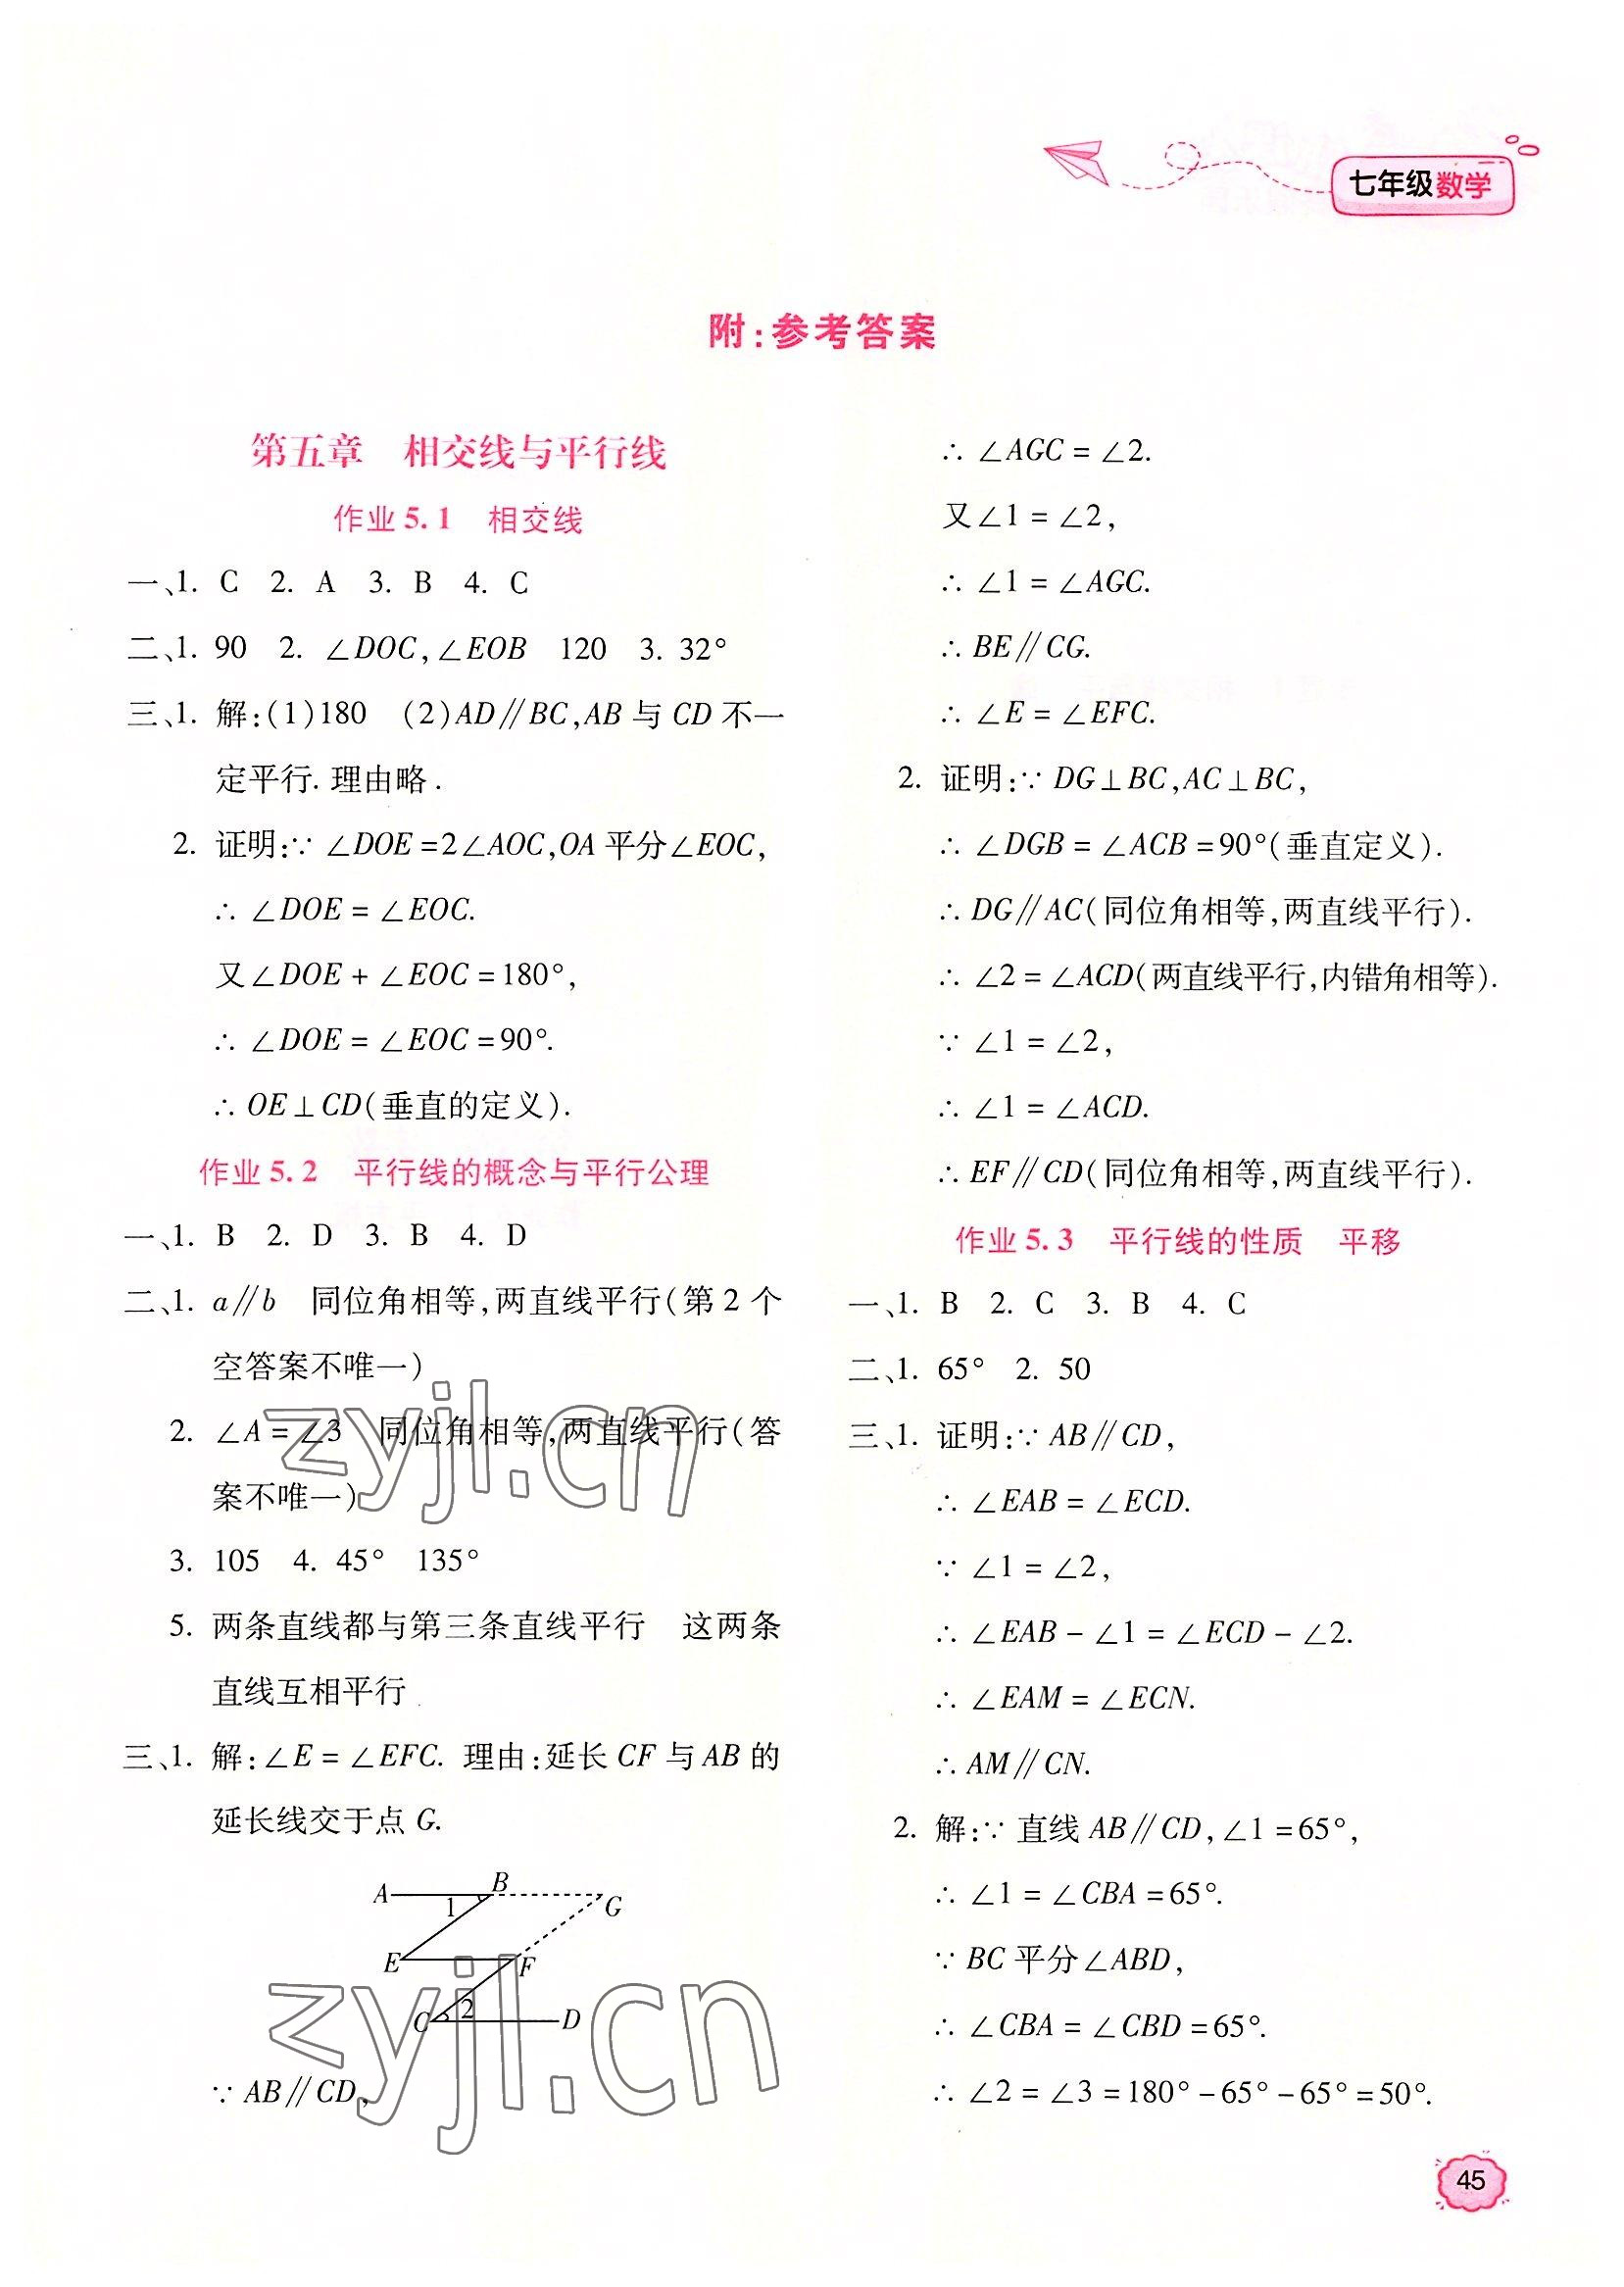 七年级数学
附:参考答案
第五章 相交线与平行线
作业 5. 1 相交线
一、1. C 2. A 3. B 4. C
二、1. 90 2. ∠DOC,∠EOB 120 3. 32°
三、1. 解:(1)180 (2)AD∥BC,AB 与 CD 不一
定平行. 理由略.
2. 证明:∵ ∠DOE=2∠AOC,OA 平分∠EOC,
∴ ∠DOE = ∠EOC.
又∠DOE + ∠EOC = 180°,
∴ ∠DOE = ∠EOC = 90°.
∴ OE⊥CD(垂直的定义).
作业 5. 2 平行线的概念与平行公理
一、1. B 2. D 3. B 4. D
二、1. a∥b 同位角相等,两直线平行(第 2 个
空答案不唯一)
2. ∠A = ∠3 同位角相等,两直线平行(答
案不唯一)
3. 105 4. 45° 135°
5. 两条直线都与第三条直线平行 这两条
直线互相平行
三、1. 解:∠E = ∠EFC. 理由:延长 CF 与 AB 的
延长线交于点 G.
A B G
1
E F
C 2 D
∵ AB∥CD,
∴ ∠AGC = ∠2.
又∠1 = ∠2,
∴ ∠1 = ∠AGC.
∴ BE∥CG.
∴ ∠E = ∠EFC.
2. 证明:∵ DG⊥BC,AC⊥BC,
∴ ∠DGB = ∠ACB = 90°(垂直定义).
∴ DG∥AC(同位角相等,两直线平行).
∴ ∠2 = ∠ACD(两直线平行,内错角相等).
∵ ∠1 = ∠2,
∴ ∠1 = ∠ACD.
∴ EF∥CD(同位角相等,两直线平行).
作业 5. 3 平行线的性质 平移
一、1. B 2. C 3. B 4. C
二、1. 65° 2. 50
三、1. 证明:∵ AB∥CD,
∴ ∠EAB = ∠ECD.
∵ ∠1 = ∠2,
∴ ∠EAB - ∠1 = ∠ECD - ∠2.
∴ ∠EAM = ∠ECN.
∴ AM∥CN.
2. 解:∵ 直线 AB∥CD,∠1 = 65°,
∴ ∠1 = ∠CBA = 65°.
∵ BC 平分∠ABD,
∴ ∠CBA = ∠CBD = 65°.
∴ ∠2 = ∠3 = 180° - 65° - 65° = 50°.
zyjl.cn
zyjl.cn
45